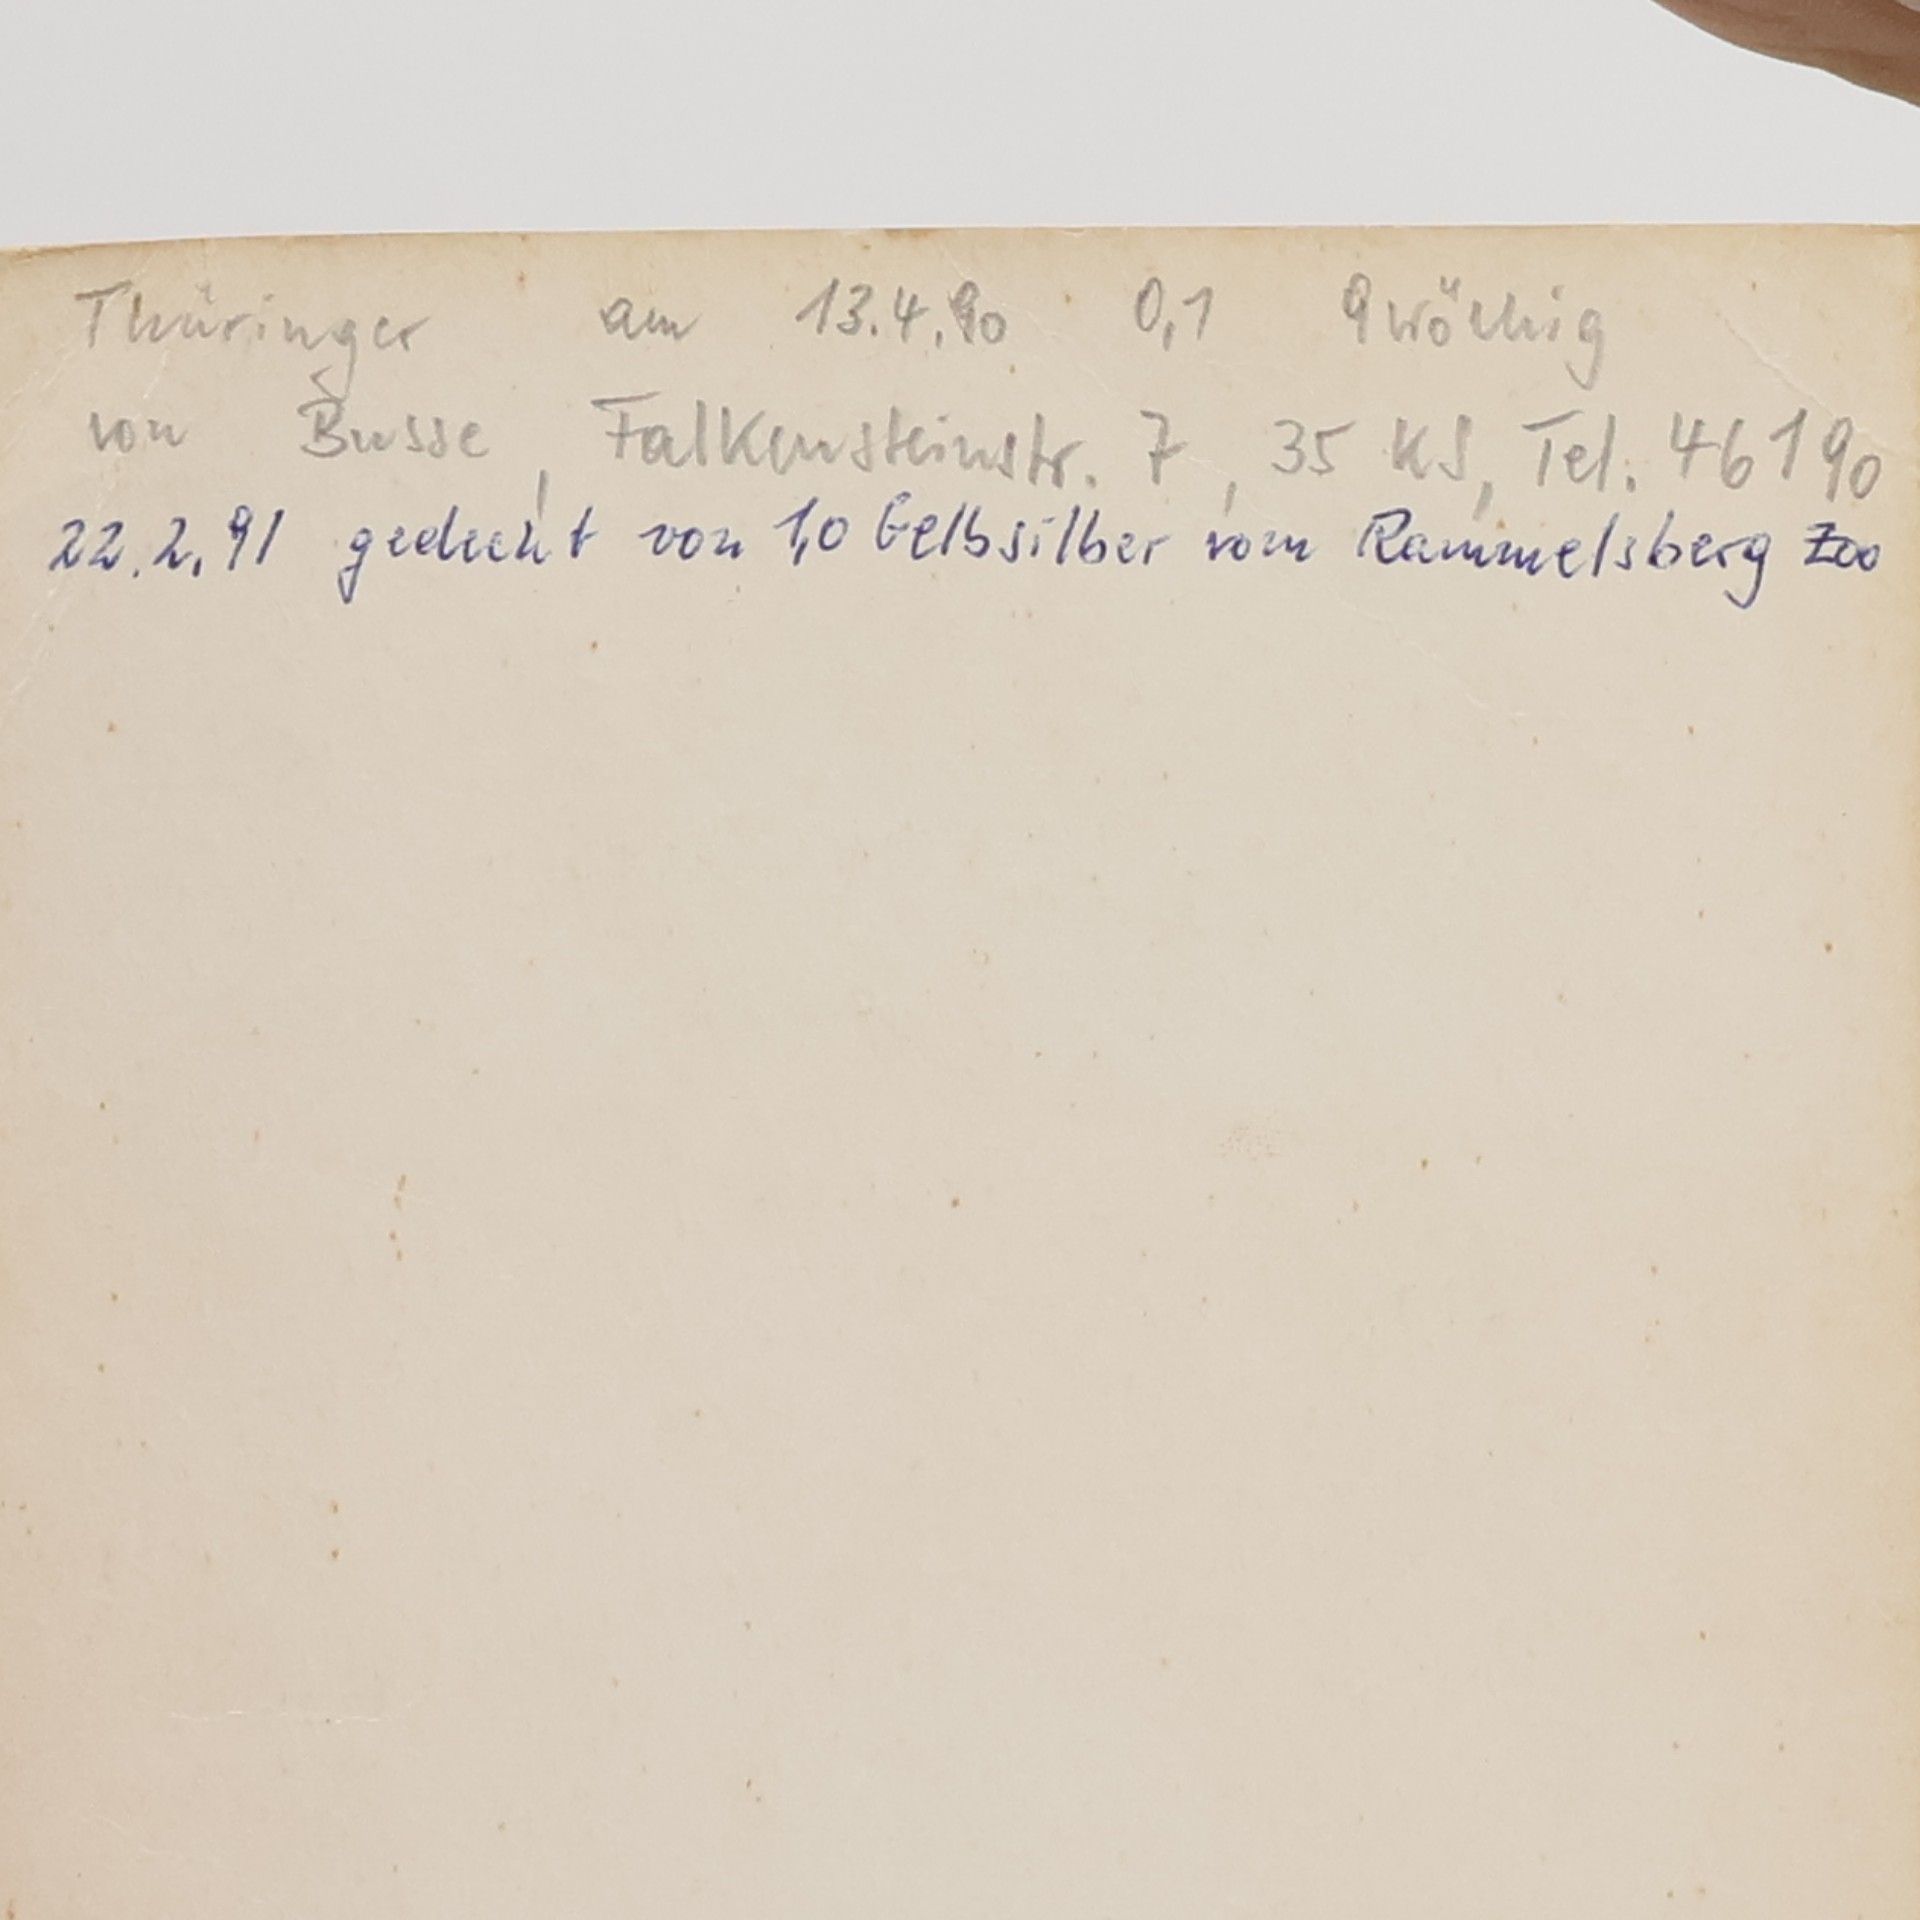 Thüringer am 13.4.90 0,1 9wöchig
von Busse, Falkensteinstr. 7, 35 KS, Tel. 46190
22.2.91 gedeckt von 1,0 Gelbsilber vom Rammelsberg Zoo